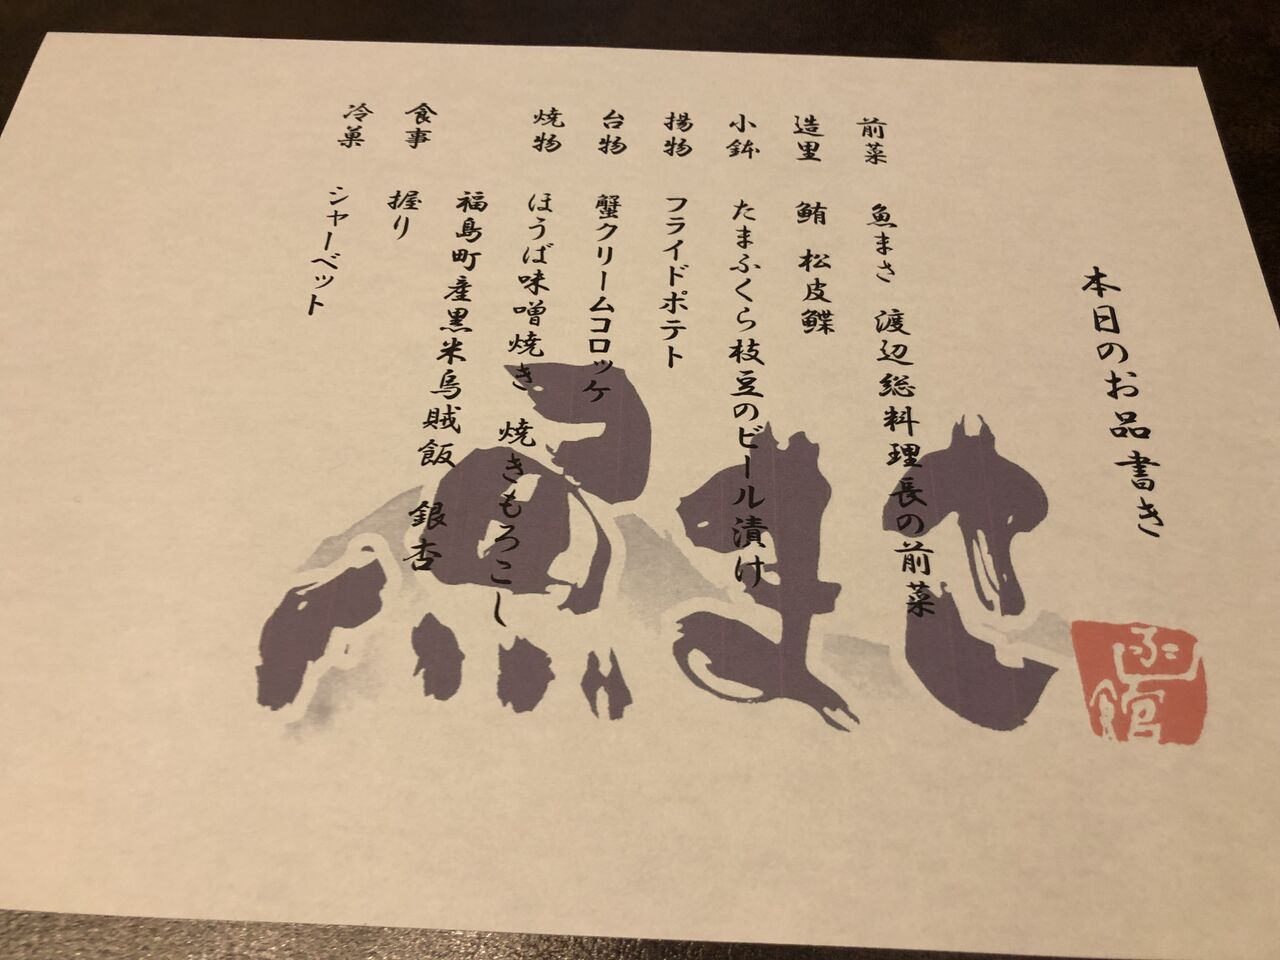 本日のお品書き
前菜 魚まさ 渡辺総料理長の前菜
造里 鮪 松皮鰈
小鉢 たまふくら枝豆のビール漬け
揚物 フライドポテト
台物 蟹クリームコロッケ
焼物 ほうば味噌焼き 焼きもろこし
福島町産黒米烏賊飯 銀杏
食事 握り
冷菓 シャーベット
魚まさ
函館